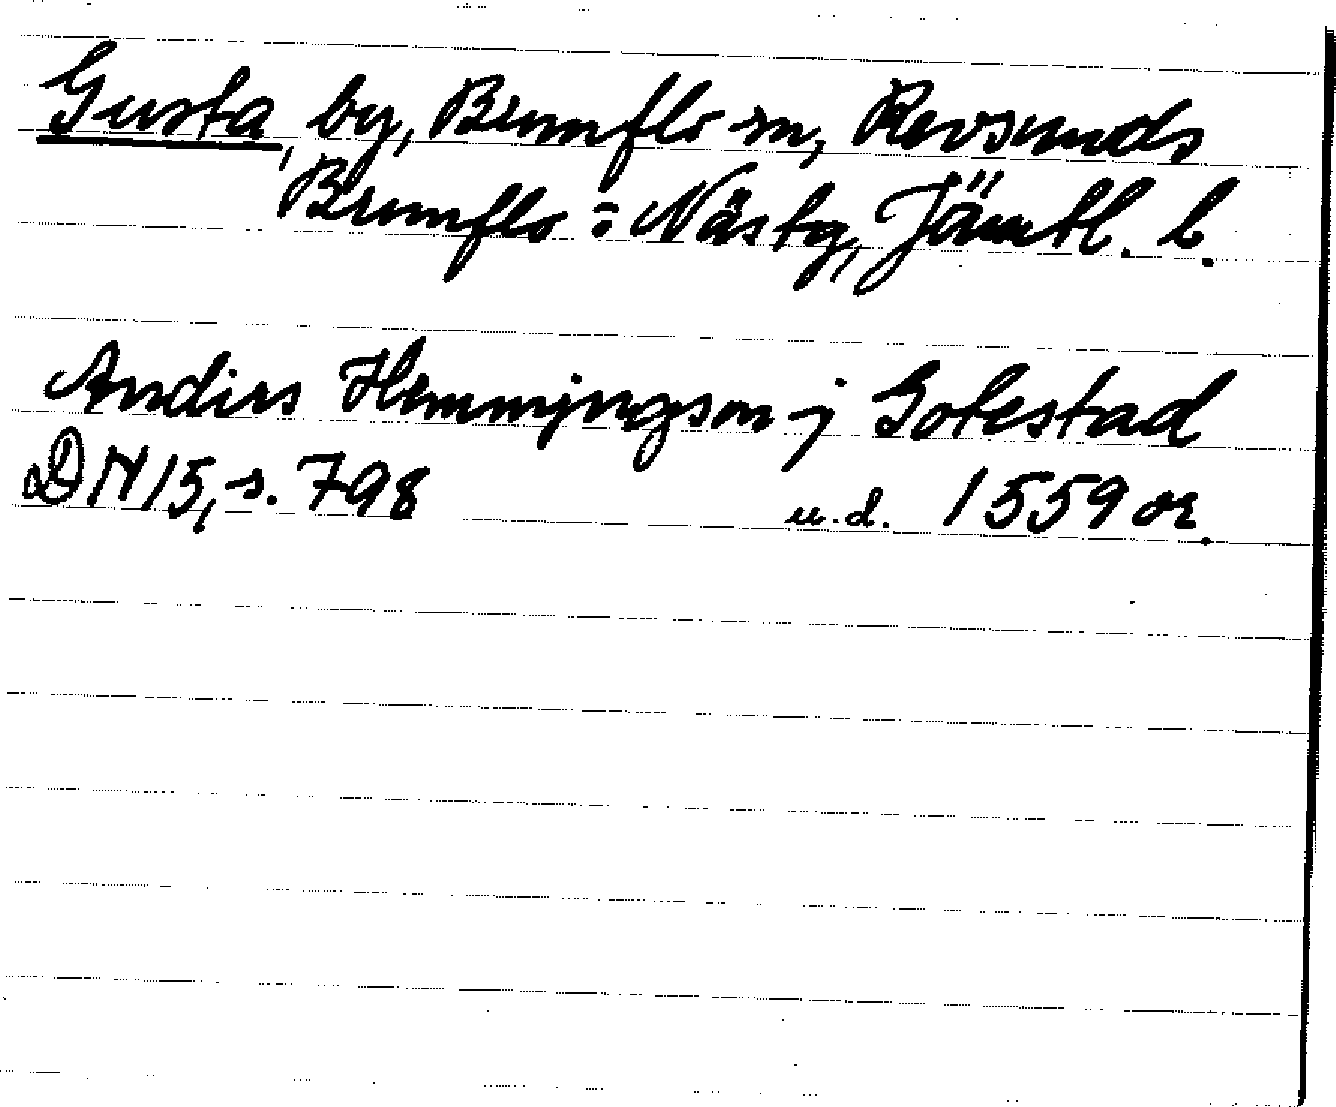 Gusta, by, Brunflo sn, Revsunds
Brunflo o Näs tg, Jämtl. l.
Andirs Hemmingson j Gotestad
DN 15, s. 798 u.d. 1559 or.